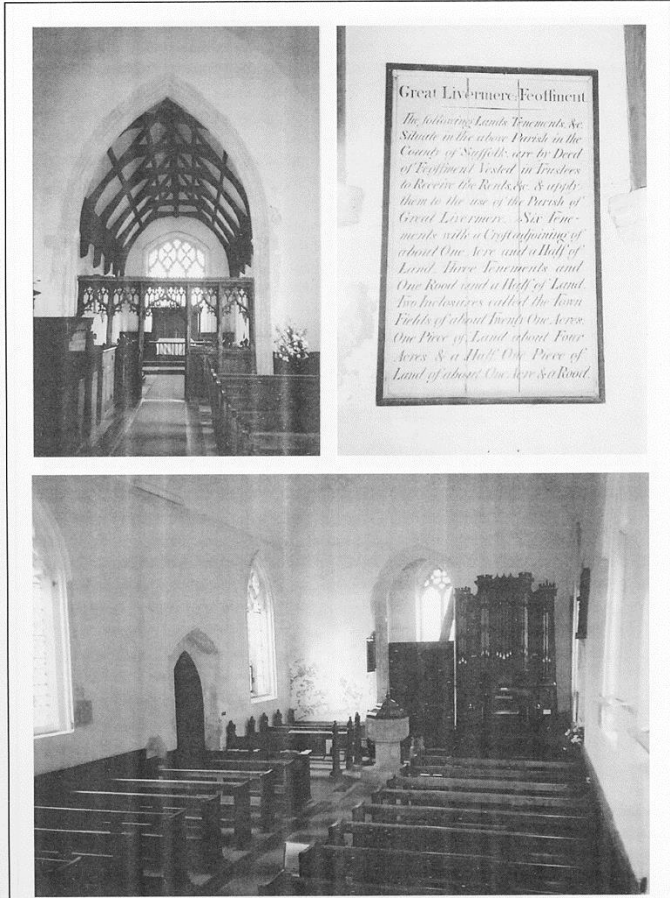 Great Livermere Feoffment
The following Lands, Tenements, &c.
Situate in the above Parish in the
County of Suffolk, are by Deed
of Feoffment Vested in Trustees
to Receive the Rents, &c. & apply
them to the use of the Parish of
Great Livermere. Six Tene-
ments with a Croft adjoining of
about One Acre and a Half of
Land. Three Tenements and
One Rood and a Half of Land.
Two Inclosures called the Town
Fields of about Twenty One Acres.
One Piece of Land about Four
Acres & a Half. One Piece of
Land of about One Acre & a Rood.